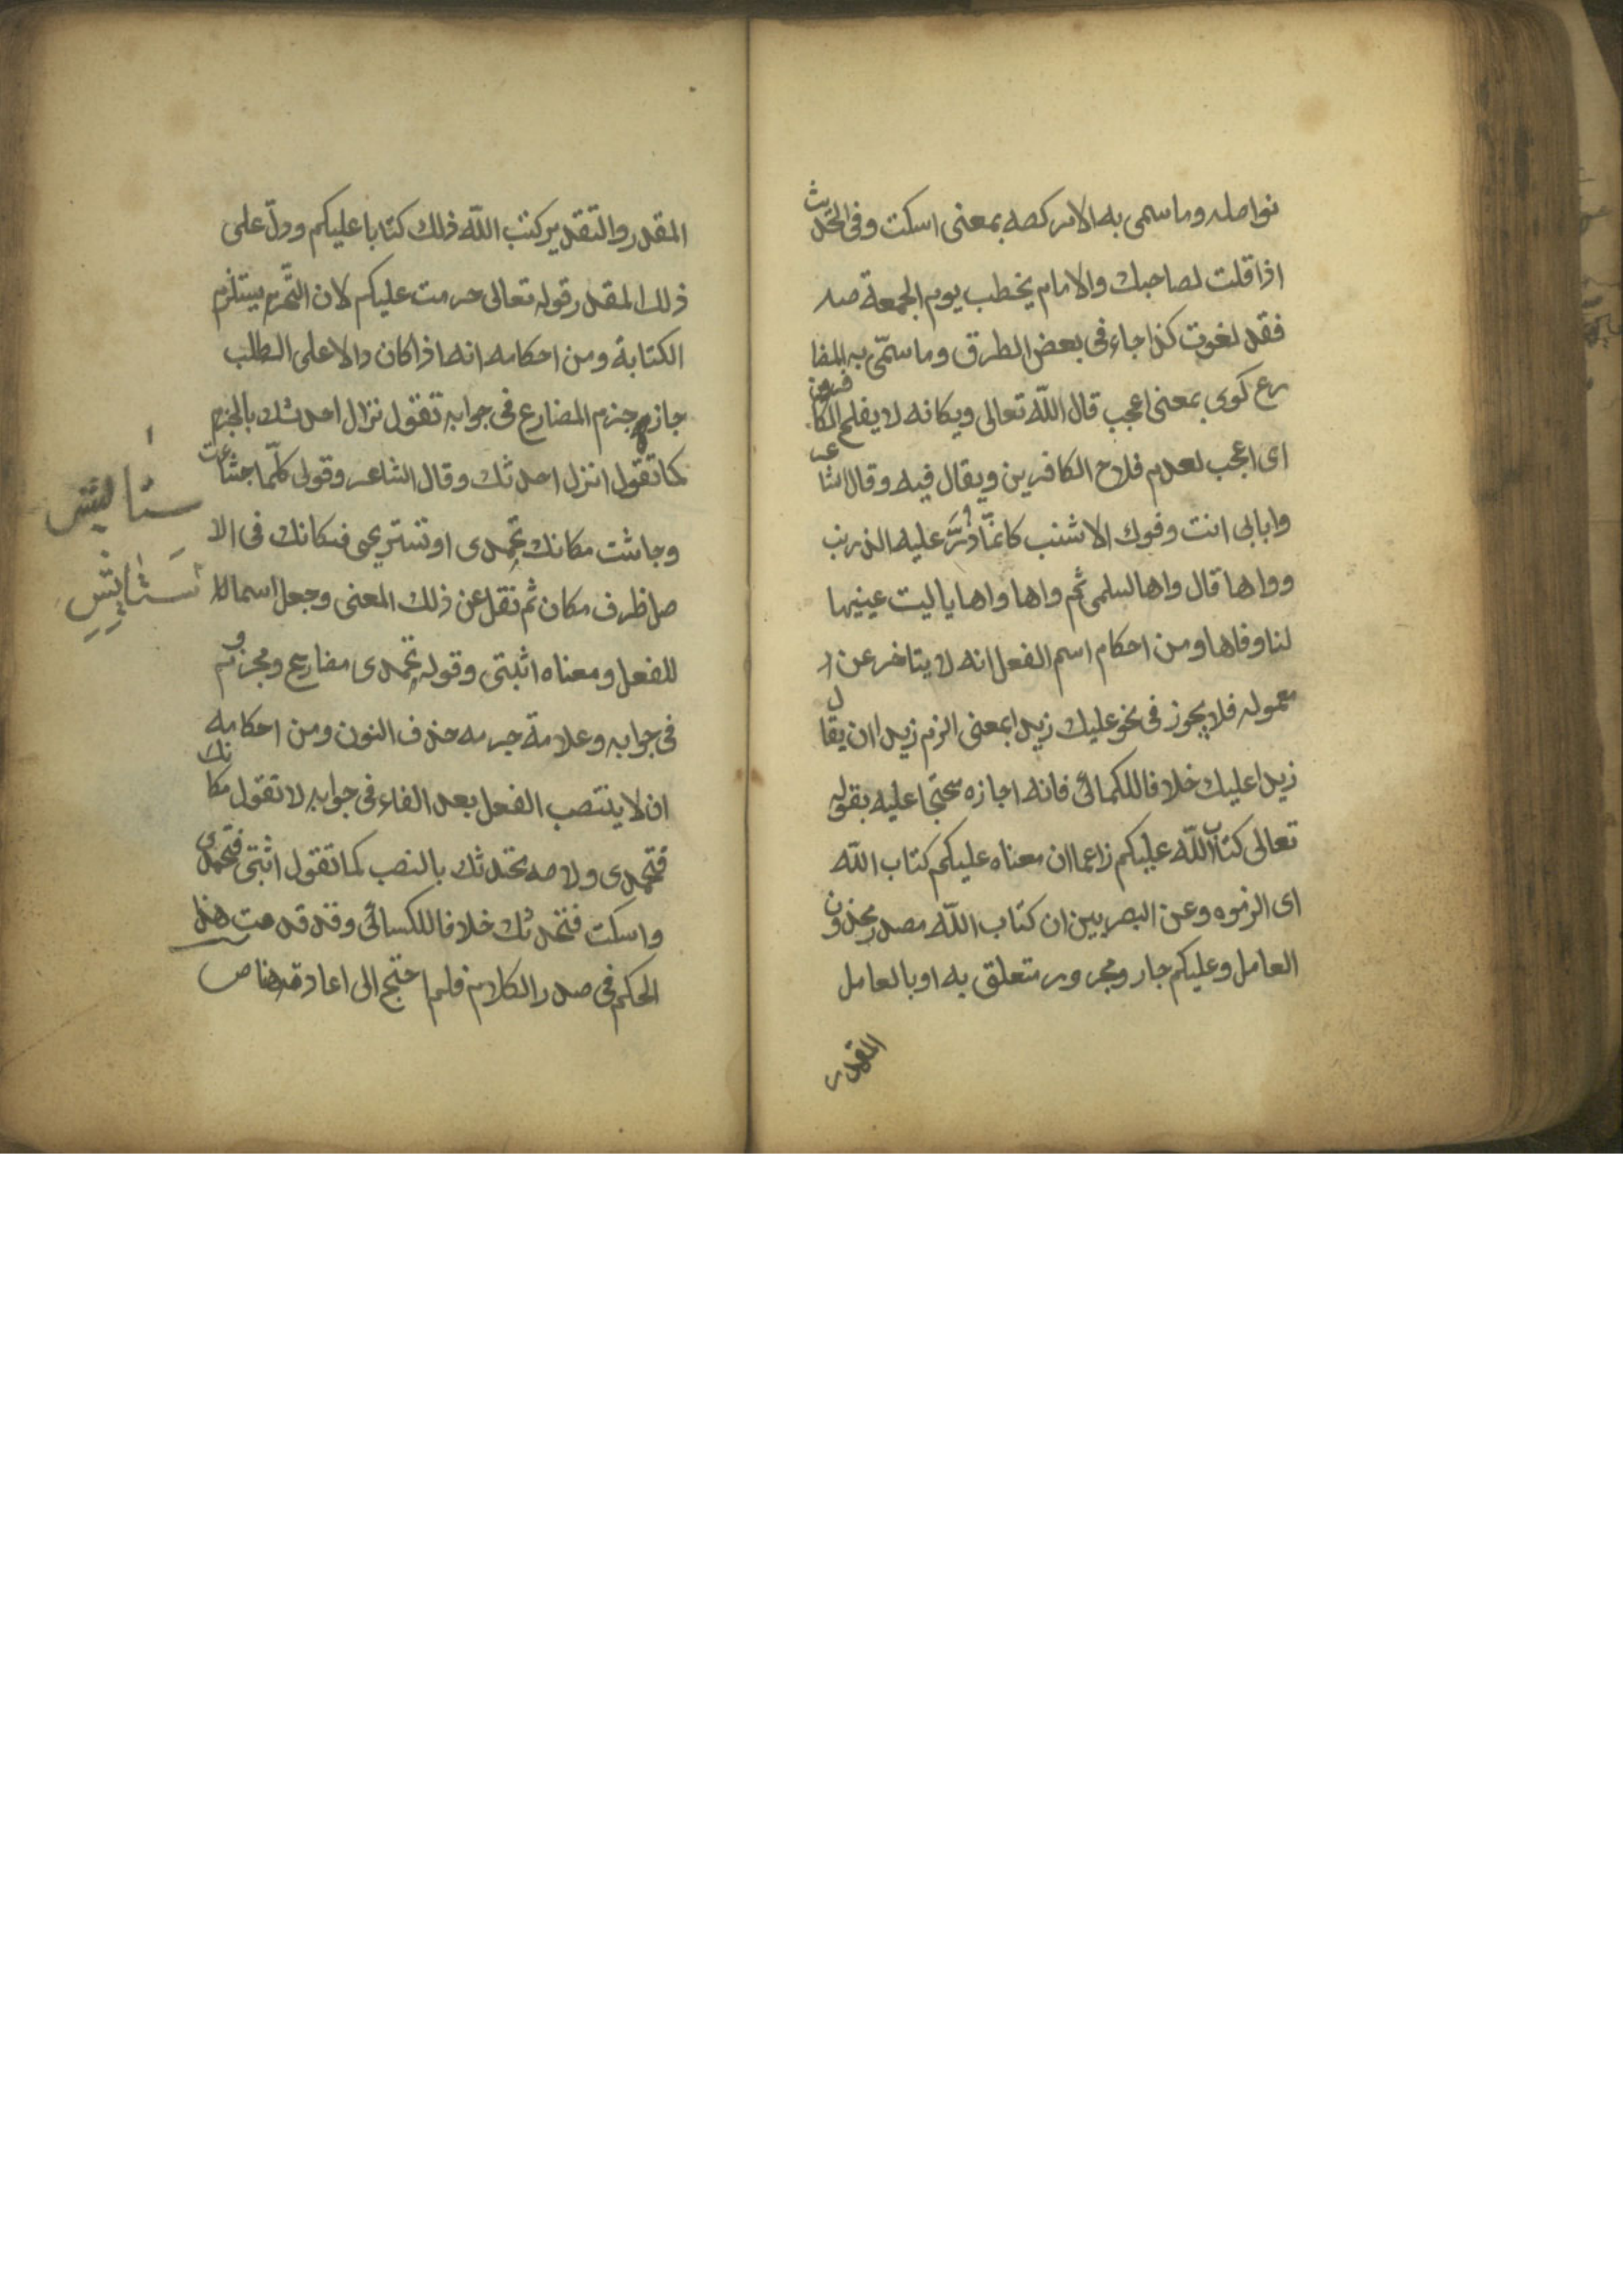 نواصله وما سمى به الامر كصه بمعنى اسكت وفى الحديث
اذا قلت لصاحبك والامام يخطب يوم الجمعة صه
فقد لغوت كذا جاء فى بعض الطرق وما سمّى به المضا
رع كوى بمعنى اعجب قال اللّه تعالى ويكانه لا يفلح الكافرون
اى اعجب لعدم فلاح الكافرين ويقال فيه وقال الشاعر
وابابى انت وفوك الاشنب كانمّا ذُرَّ عليه الذرنب
وواها قال واها لسلمى ثم واها واها ياليت عينيها
لنا وفاها ومن احكام اسم الفعل انه لا يتاخر عن
معموله فلا يجوز فى نحو عليك زيدا بمعنى الزم زيدا ان يقال
زيدا عليك خلافا للكسائى فانه اجازه محتجا عليه بقوله
تعالى كتاب اللّه عليكم زاعما ان معناه عليكم كتاب اللّه
اى الزموه وعن البصريين ان كتاب اللّه مصدر محذوف
العامل وعليكم جار ومجرور متعلق به او بالعامل
المقدر
المقدر والتقدير كتب اللّه ذلك كتابا عليكم ودلّ على
ذلك المقدر قوله تعالى حرمت عليكم لان التّحريم يستلزم
الكتابة ومن احكامه انه اذا كان دالا على الطلب
جاز جزم المضارع فى جوابه تقول نزال احدثك بالجزم
كما تقول انزل احدثك وقال الشاعر وقولى كلّما جشأت
وجاشت مكانك تحمدى او تستريحى فمكانك فى الا
صل ظرف مكان ثم نقل عن ذلك المعنى وجعل اسما
للفعل ومعناه اثبتى وقوله تحمدى مضارع ومجزوم
فى جوابه وعلامة جزمه حذف النون ومن احكامه
ان لا ينتصب الفعل بعد الفاء فى جوابه لا تقول مكانك
فتحمدى ولا صه نحدثك بالنصب كما تقول اثبتى فتحمدى
واسكت فنحدثك خلافا للكسائى وقد قدمت هذا
الحكم فى صدر الكلام فلم احتج الى اعادته هنا ص
ستايش
سَتايِشِ